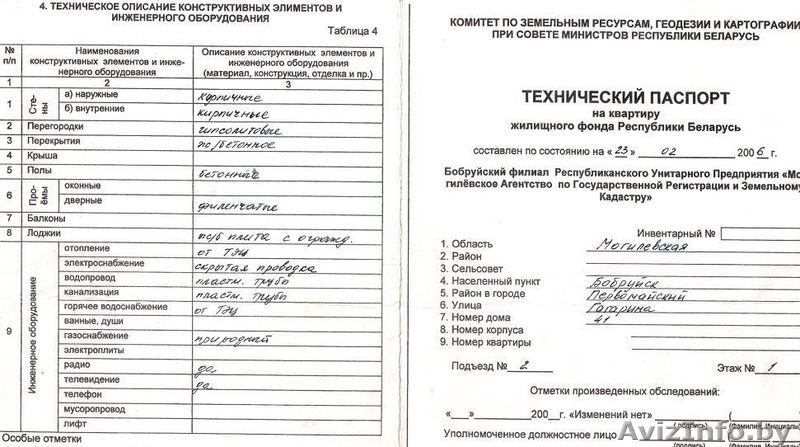 4. ТЕХНИЧЕСКОЕ ОПИСАНИЕ КОНСТРУКТИВНЫХ ЭЛИМЕНТОВ И
ИНЖЕНЕРНОГО ОБОРУДОВАНИЯ
Таблица 4
№ п/п
Наименования конструктивных элементов и инже-нерного оборудования
Описание конструктивных элементов и инженерного оборудования (материал, конструкция, отделка и пр.)
1 2 3
1 Сте-ны а) наружные кирпичные
б) внутренние кирпичные
2 Перегородки гипсолитовые
3 Перекрытия ж/бетонное
4 Крыша
5 Полы бетонные
6 Про-ёмы оконные
дверные филенчатые
7 Балконы
8 Лоджии ж/б плита с огражд.
9 Инженерное оборудование
отопление от ТЭЦ
электроснабжение скрытая проводка
водопровод пластм. трубы
канализация пластм. трубы
горячее водоснабжение от ТЭЦ
ванные, души
газоснабжение природный
электроплиты
радио да
телевидение да
телефон
мусоропровод
лифт
Особые отметки
КОМИТЕТ ПО ЗЕМЕЛЬНЫМ РЕСУРСАМ, ГЕОДЕЗИИ И КАРТОГРАФИИ
ПРИ СОВЕТЕ МИНИСТРОВ РЕСПУБЛИКИ БЕЛАРУСЬ
ТЕХНИЧЕСКИЙ ПАСПОРТ
на квартиру
жилищного фонда Республики Беларусь
составлен по состоянию на «23» 02 2006 г.
Бобруйский филиал Республиканского Унитарного Предприятия «Мо-
гилёвское Агентство по Государственной Регистрации и Земельному
Кадастру»
Инвентарный №
1. Область Могилевская
2. Район
3. Сельсовет
4. Населенный пункт Бобруйск
5. Район в городе Первомайский
6. Улица Гагарина
7. Номер дома 41
8. Номер корпуса
9. Номер квартиры
Подъезд № 2 Этаж № 1
Отметки произведенных обследований:
«__» ____ 200__ г. «Изменений нет»
(подпись) (Фамилия, Инициалы)
Уполномоченное должностное лицо
(подпись) (Фамилия, Инициалы)
AvizInfo.by